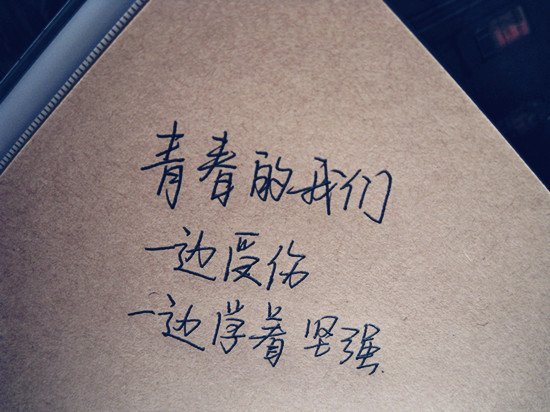 青春的我们
一边受伤
一边学着坚强.